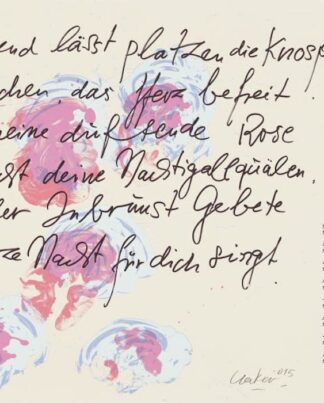 end lässt platzen die Knosp
chen, das Herz befreit.
eine duftende Rose
st deine Nachtigall quälen.
er Inbrunst Gebete
ze Nacht für dich singt.
Uecker '015